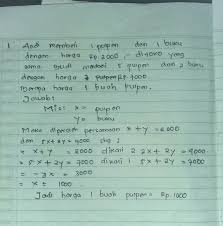 1 Andi membeli 1 pulpen dan 1 buku
dengan harga Rp. 2000 - ditoko yang
sama Budi membeli 5 pulpen dan 2 buku
dengan harga Rp 7000
Berapa harga 1 buah pulpen.
Jawab:
Mis: x = pulpen
y = buku
Maka diperoleh persamaan x + y = 2000
dan 5x + 2y = 7000
= x + y = 2000 dikali 2 2x + 2y = 4000
= 5x + 2y = 7000 dikali 1 5x + 2y = 7000
= - 3000
= x = 1000
Jadi harga 1 buah pulpen = Rp. 1000